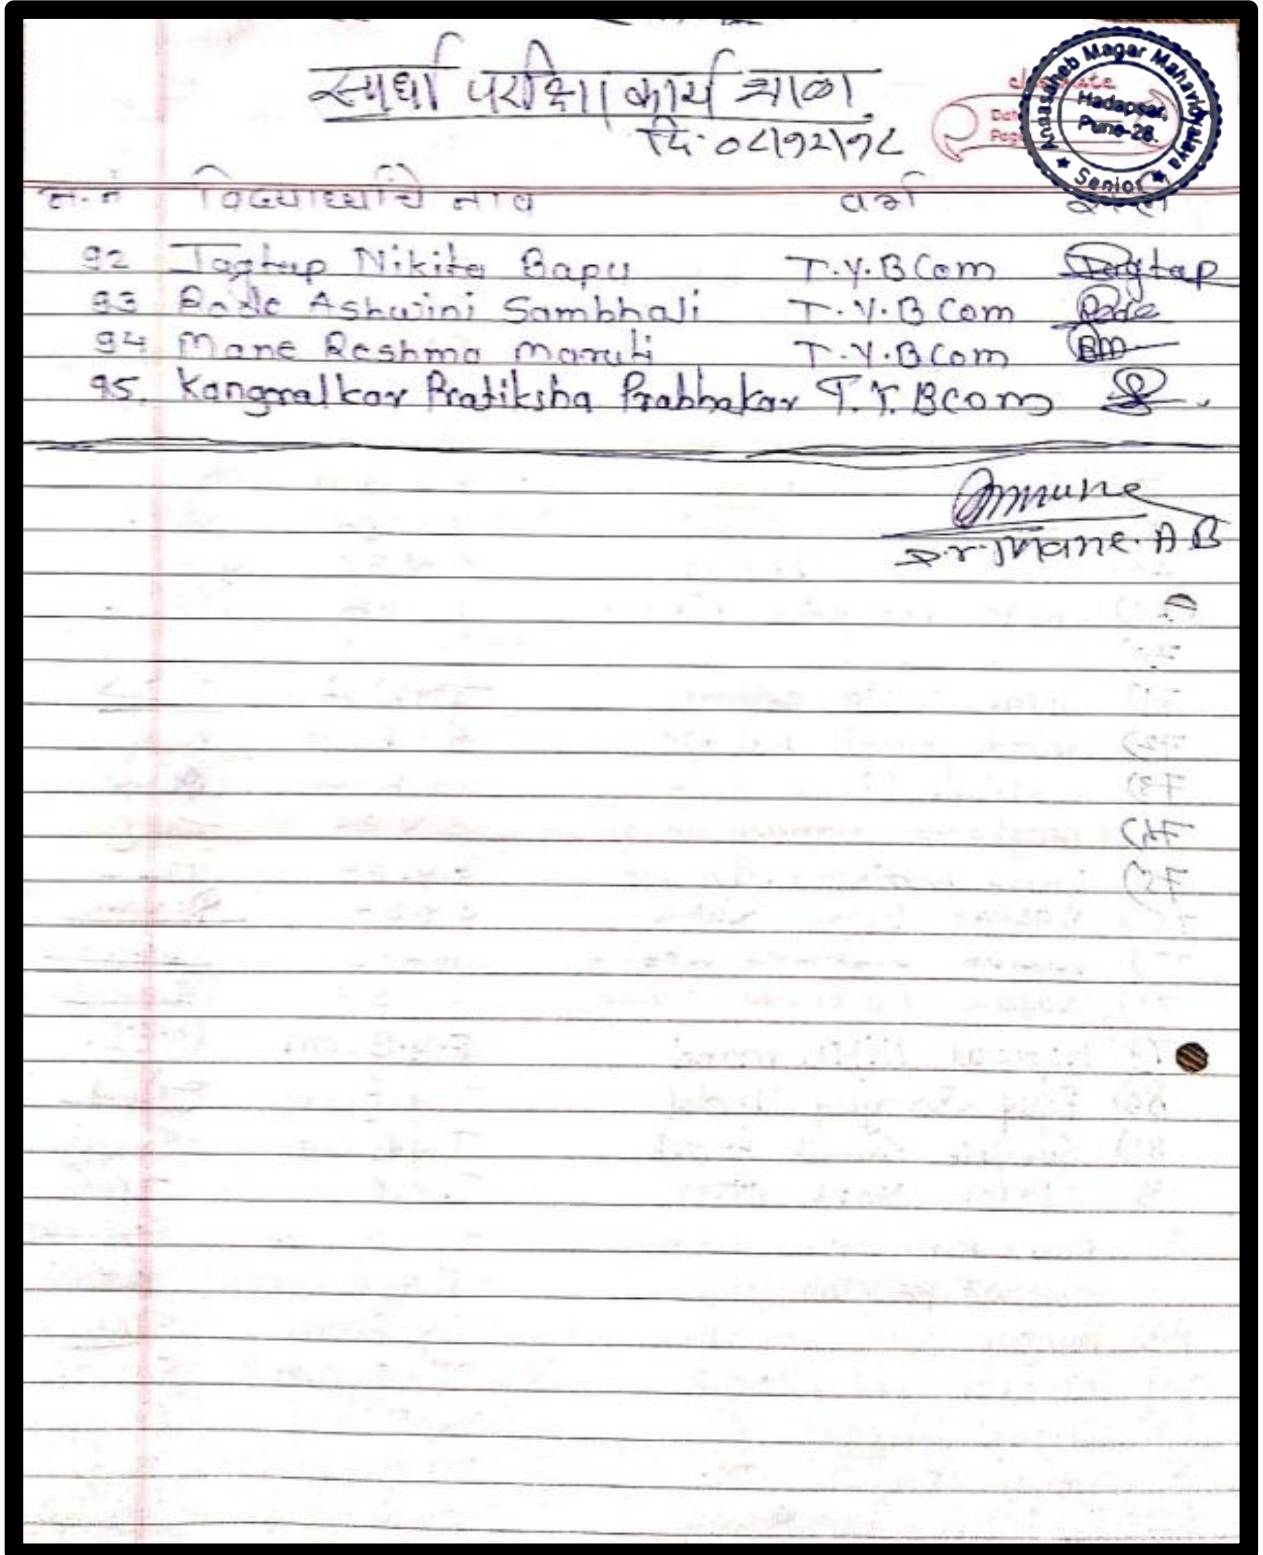 स्पर्धा परीक्षा कार्यशाळा
दि. ०८/१२/१८
Annasaheb Magar Mahavidyalaya
Hadapsar,
Pune-28.
Senior
अ.नं विद्यार्थ्यांचे नाव वर्ग
92 Jagtap Nikita Bapu T.Y.BCom Jagtap
93 Bade Ashwini Sambhaji T.Y.BCom Bade
94 Mane Reshma Maruti T.Y.BCom RM
95. Kangralkar Pratiksha Prabhakar T.Y.BCom
Dr. Mane. A B